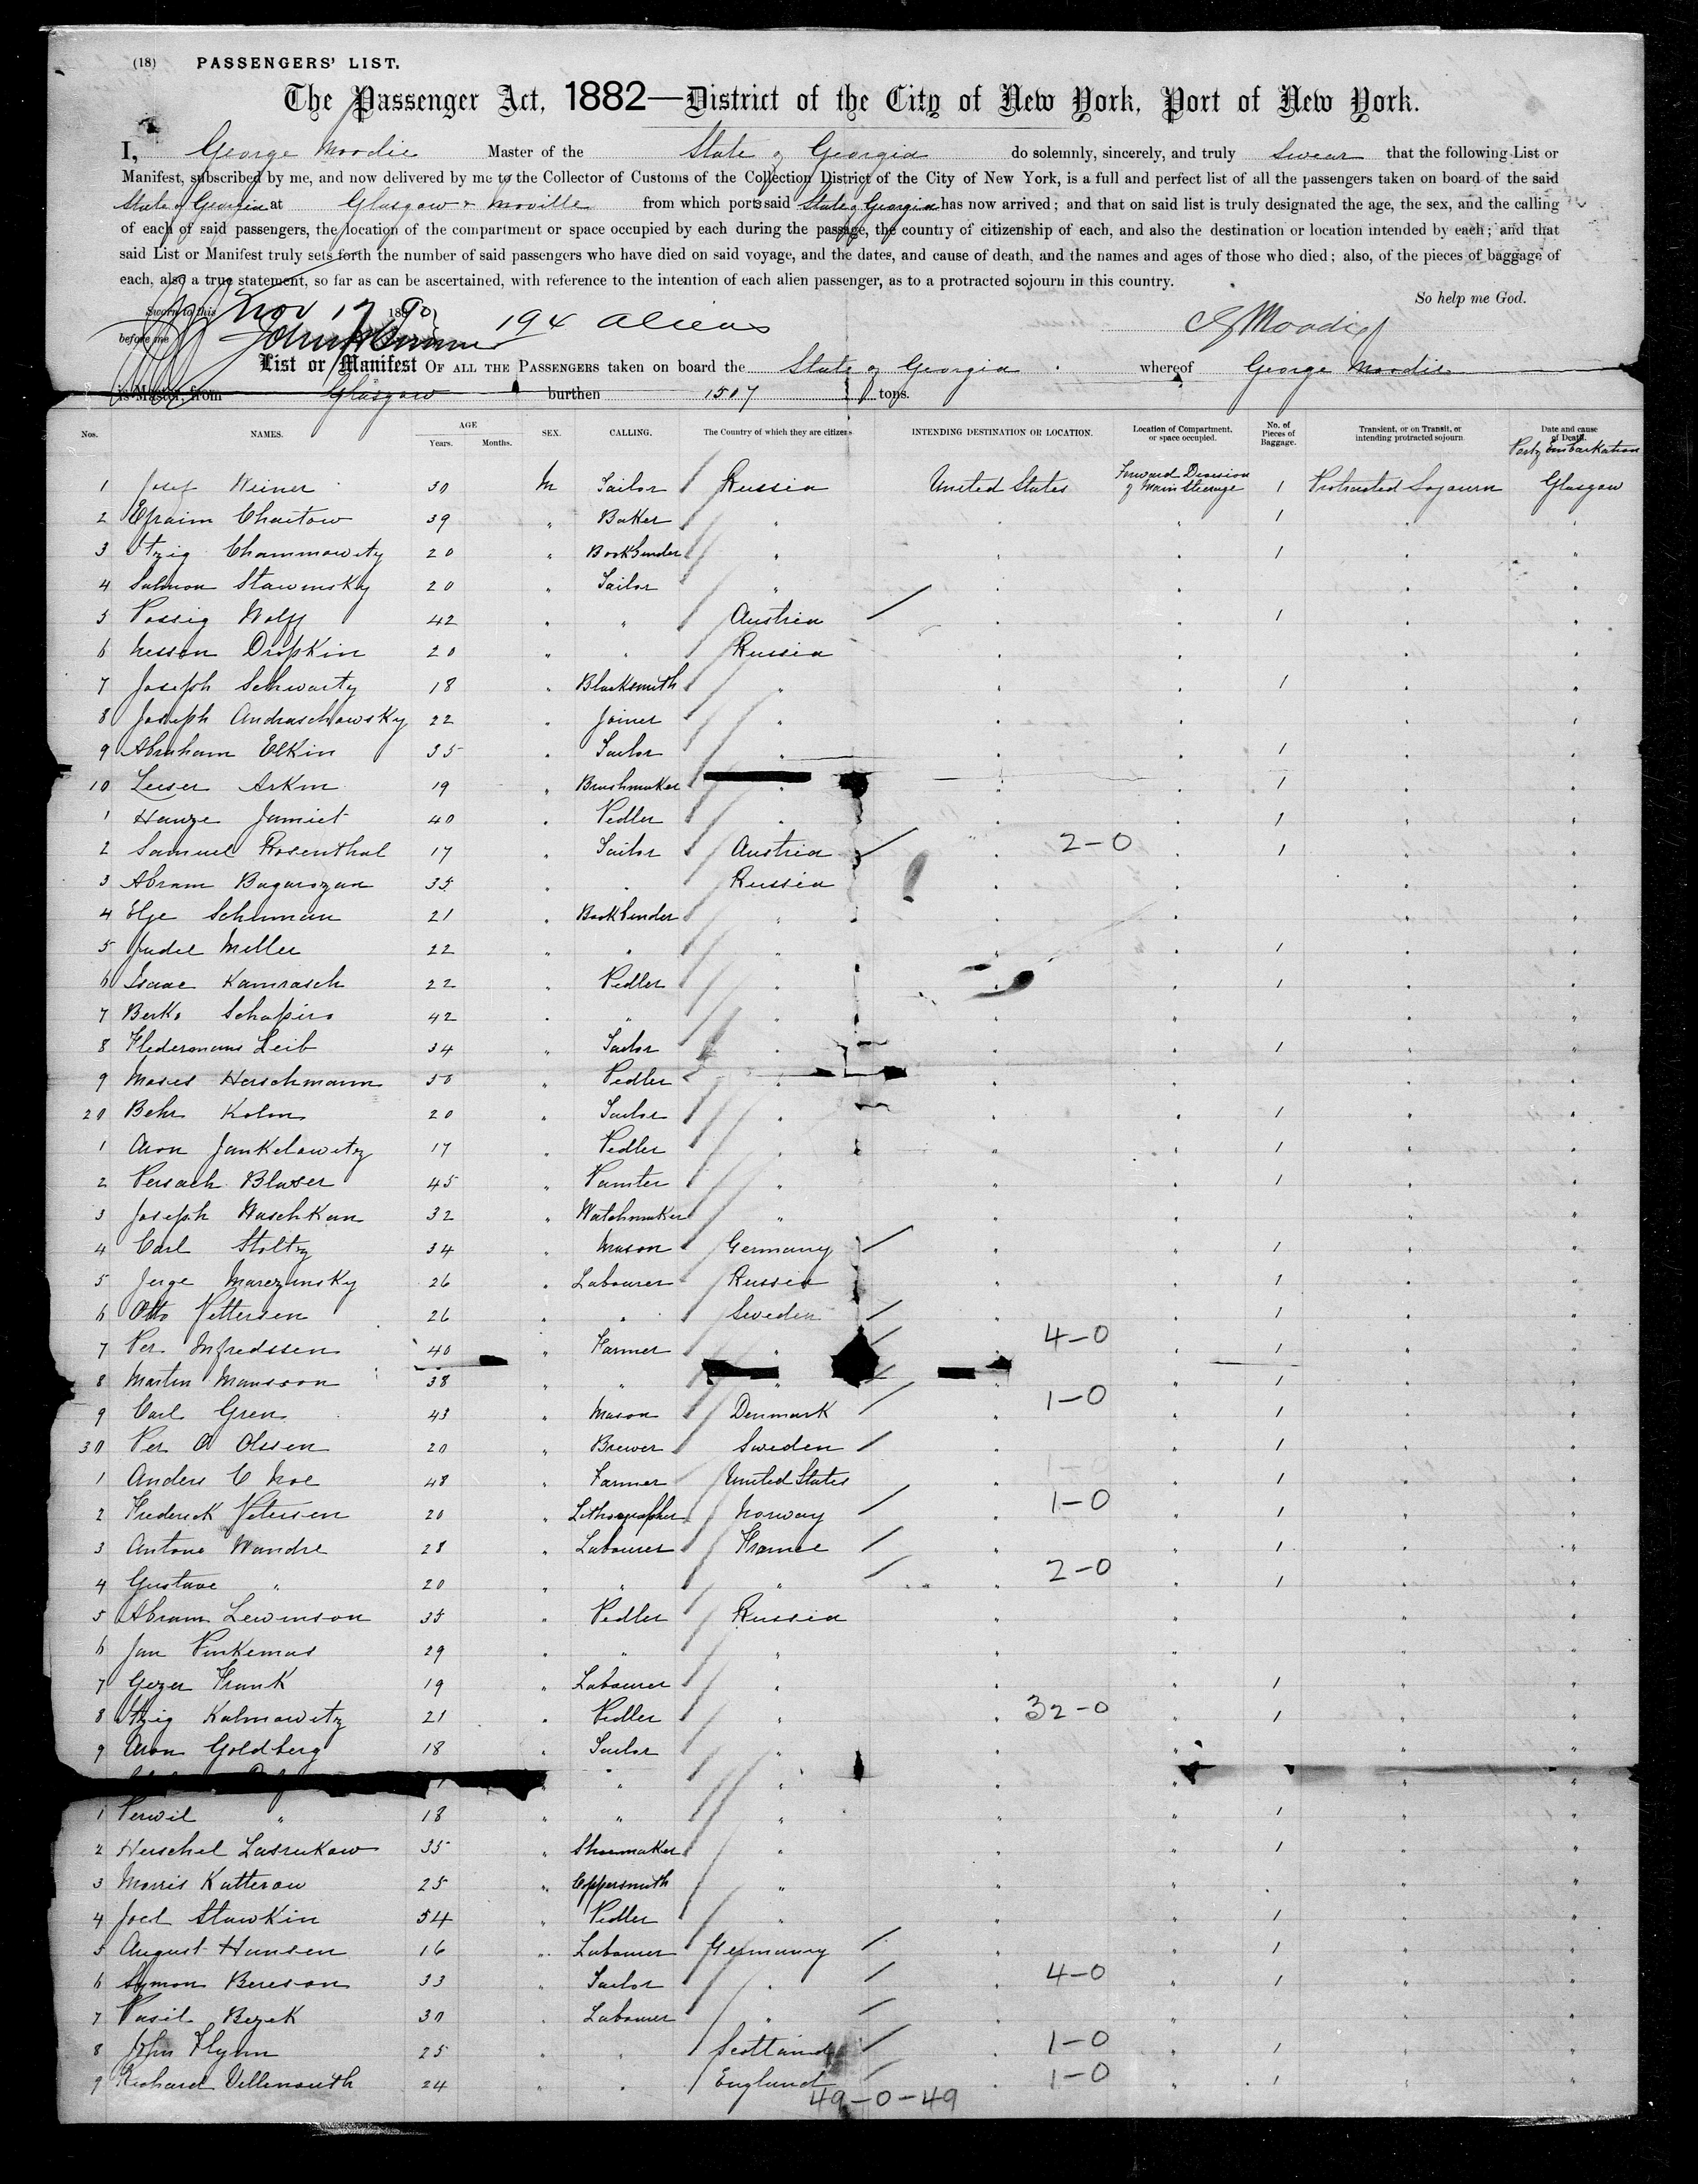 (18) PASSENGERS' LIST.
The Passenger Act, 1882—District of the City of New York, Port of New York.
I, George Moodie Master of the State of Georgia do solemnly, sincerely, and truly swear that the following List or
Manifest, subscribed by me, and now delivered by me to the Collector of Customs of the Collection District of the City of New York, is a full and perfect list of all the passengers taken on board of the said
State of Georgia at Glasgow & Moville from which ports said State of Georgia has now arrived; and that on said list is truly designated the age, the sex, and the calling
of each of said passengers, the location of the compartment or space occupied by each during the passage, the country of citizenship of each, and also the destination or location intended by each; and that
said List or Manifest truly sets forth the number of said passengers who have died on said voyage, and the dates, and cause of death, and the names and ages of those who died; also, of the pieces of baggage of
each, also a true statement, so far as can be ascertained, with reference to the intention of each alien passenger, as to a protracted sojourn in this country.
So help me God.
Sworn to this Nov 17 1890
194 aliens
G Moodie
before me
List or Manifest OF ALL THE PASSENGERS taken on board the State of Georgia whereof George Moodie
is Master, from Glasgow burthen 1507 tons.
Nos. NAMES. AGE Years. Months. SEX. CALLING. The Country of which they are citizens INTENDING DESTINATION OR LOCATION. Location of Compartment, or space occupied. No. of Pieces of Baggage. Transient, or on Transit, or intending protracted sojourn. Date and cause of Death.
Port of Embarkation
1 Josef Weiner 30 M Tailor Russia United States Forward Division of Main Steerage 1 Protracted Sojourn Glasgow
2 Efraim Chaitow 39 " Baker " " " 1 " "
3 Itzig Chammowitz 20 " Bookbinder " " " 1 " "
4 Salmon Stawinsky 20 " Tailor " " " " "
5 Possig Wolff 42 " " Austria " " 1 " "
6 Nissen Dropkin 20 " " Russia " " " "
7 Joseph Schwartz 18 " Blacksmith " " " 1 " "
8 Joseph Andraschowsky 22 " Joiner " " " " "
9 Abraham Elkin 35 " Tailor " " " 1 " "
10 Leiser Arkin 19 " Brushmaker " " " 1 " "
1 Hanze Jamiet 40 " Pedler " " " 1 " "
2 Samuel Rosenthal 17 " Tailor Austria " 2-0 " 1 " "
3 Abram Bagarozan 35 " " Russia " " " "
4 Elje Schuman 21 " Bookbinder " " " " "
5 Judel Miller 22 " " " " " 1 " "
6 Isaac Kamrasch 22 " Pedler " " " 1 " "
7 Berko Schapiro 42 " " " " " " "
8 Fledermaus Leib 34 " Tailor " " " 1 " "
9 Moses Herschmann 50 " Pedler " " " " "
20 Behr Kolm 20 " Tailor " " " 1 " "
1 Aron Jankelowitz 17 " Pedler " " " 1 " "
2 Persach Blaser 45 " Painter " " " 1 " "
3 Joseph Waschkan 32 " Watchmaker " " " " "
4 Carl Stoltz 34 " Mason Germany " " 1 " "
5 Jerge Marezinsky 26 " Labourer Russia " " 1 " "
6 Otto Pettersen 26 " " Sweden " " 1 " "
7 Per Infredssen 40 " Farmer " " 4-0 " 1 " "
8 Martin Mansson 38 " " " " 1 " "
9 Carl Gren 43 " Mason Denmark " 1-0 " 1 " "
30 Per O Olssen 20 " Brewer Sweden " " 1 " "
1 Anders C Noe 48 " Farmer United States " 1-0 " 1 " "
2 Frederick Petersen 20 " Lithographer Norway " 1-0 " 1 " "
3 Antone Wandre 28 " Labourer France " " 1 " "
4 Gustave " 20 " " " " 2-0 " 1 " "
5 Abram Lewinson 35 " Pedler Russia " " " "
6 Jan Pinkemas 29 " " " " " " "
7 Gezer Frank 19 " Labourer " " " 1 " "
8 Itzig Kalmowitz 21 " Pedler " " 32-0 " 1 " "
9 Aron Goldberg 18 " Tailor " " " " "
" " " " " " "
1 Perwil " 18 " " " " " 1 " "
2 Herschel Lasrukow 35 " Shoemaker " " " 1 " "
3 Morris Katterow 25 " Coppersmith " " " " "
4 Joel Slawkin 54 " Pedler " " " 1 " "
5 August Hansen 16 " Labourer Germany " " 1 " "
6 Symon Bereson 33 " Tailor " " 4-0 " 1 " "
7 Vasil Bezek 30 " Labourer " " " " "
8 John Flynn 25 " " Scotland " 1-0 " 1 " "
9 Richard 24 " " England " 1-0 " 1 " "
49-0-49